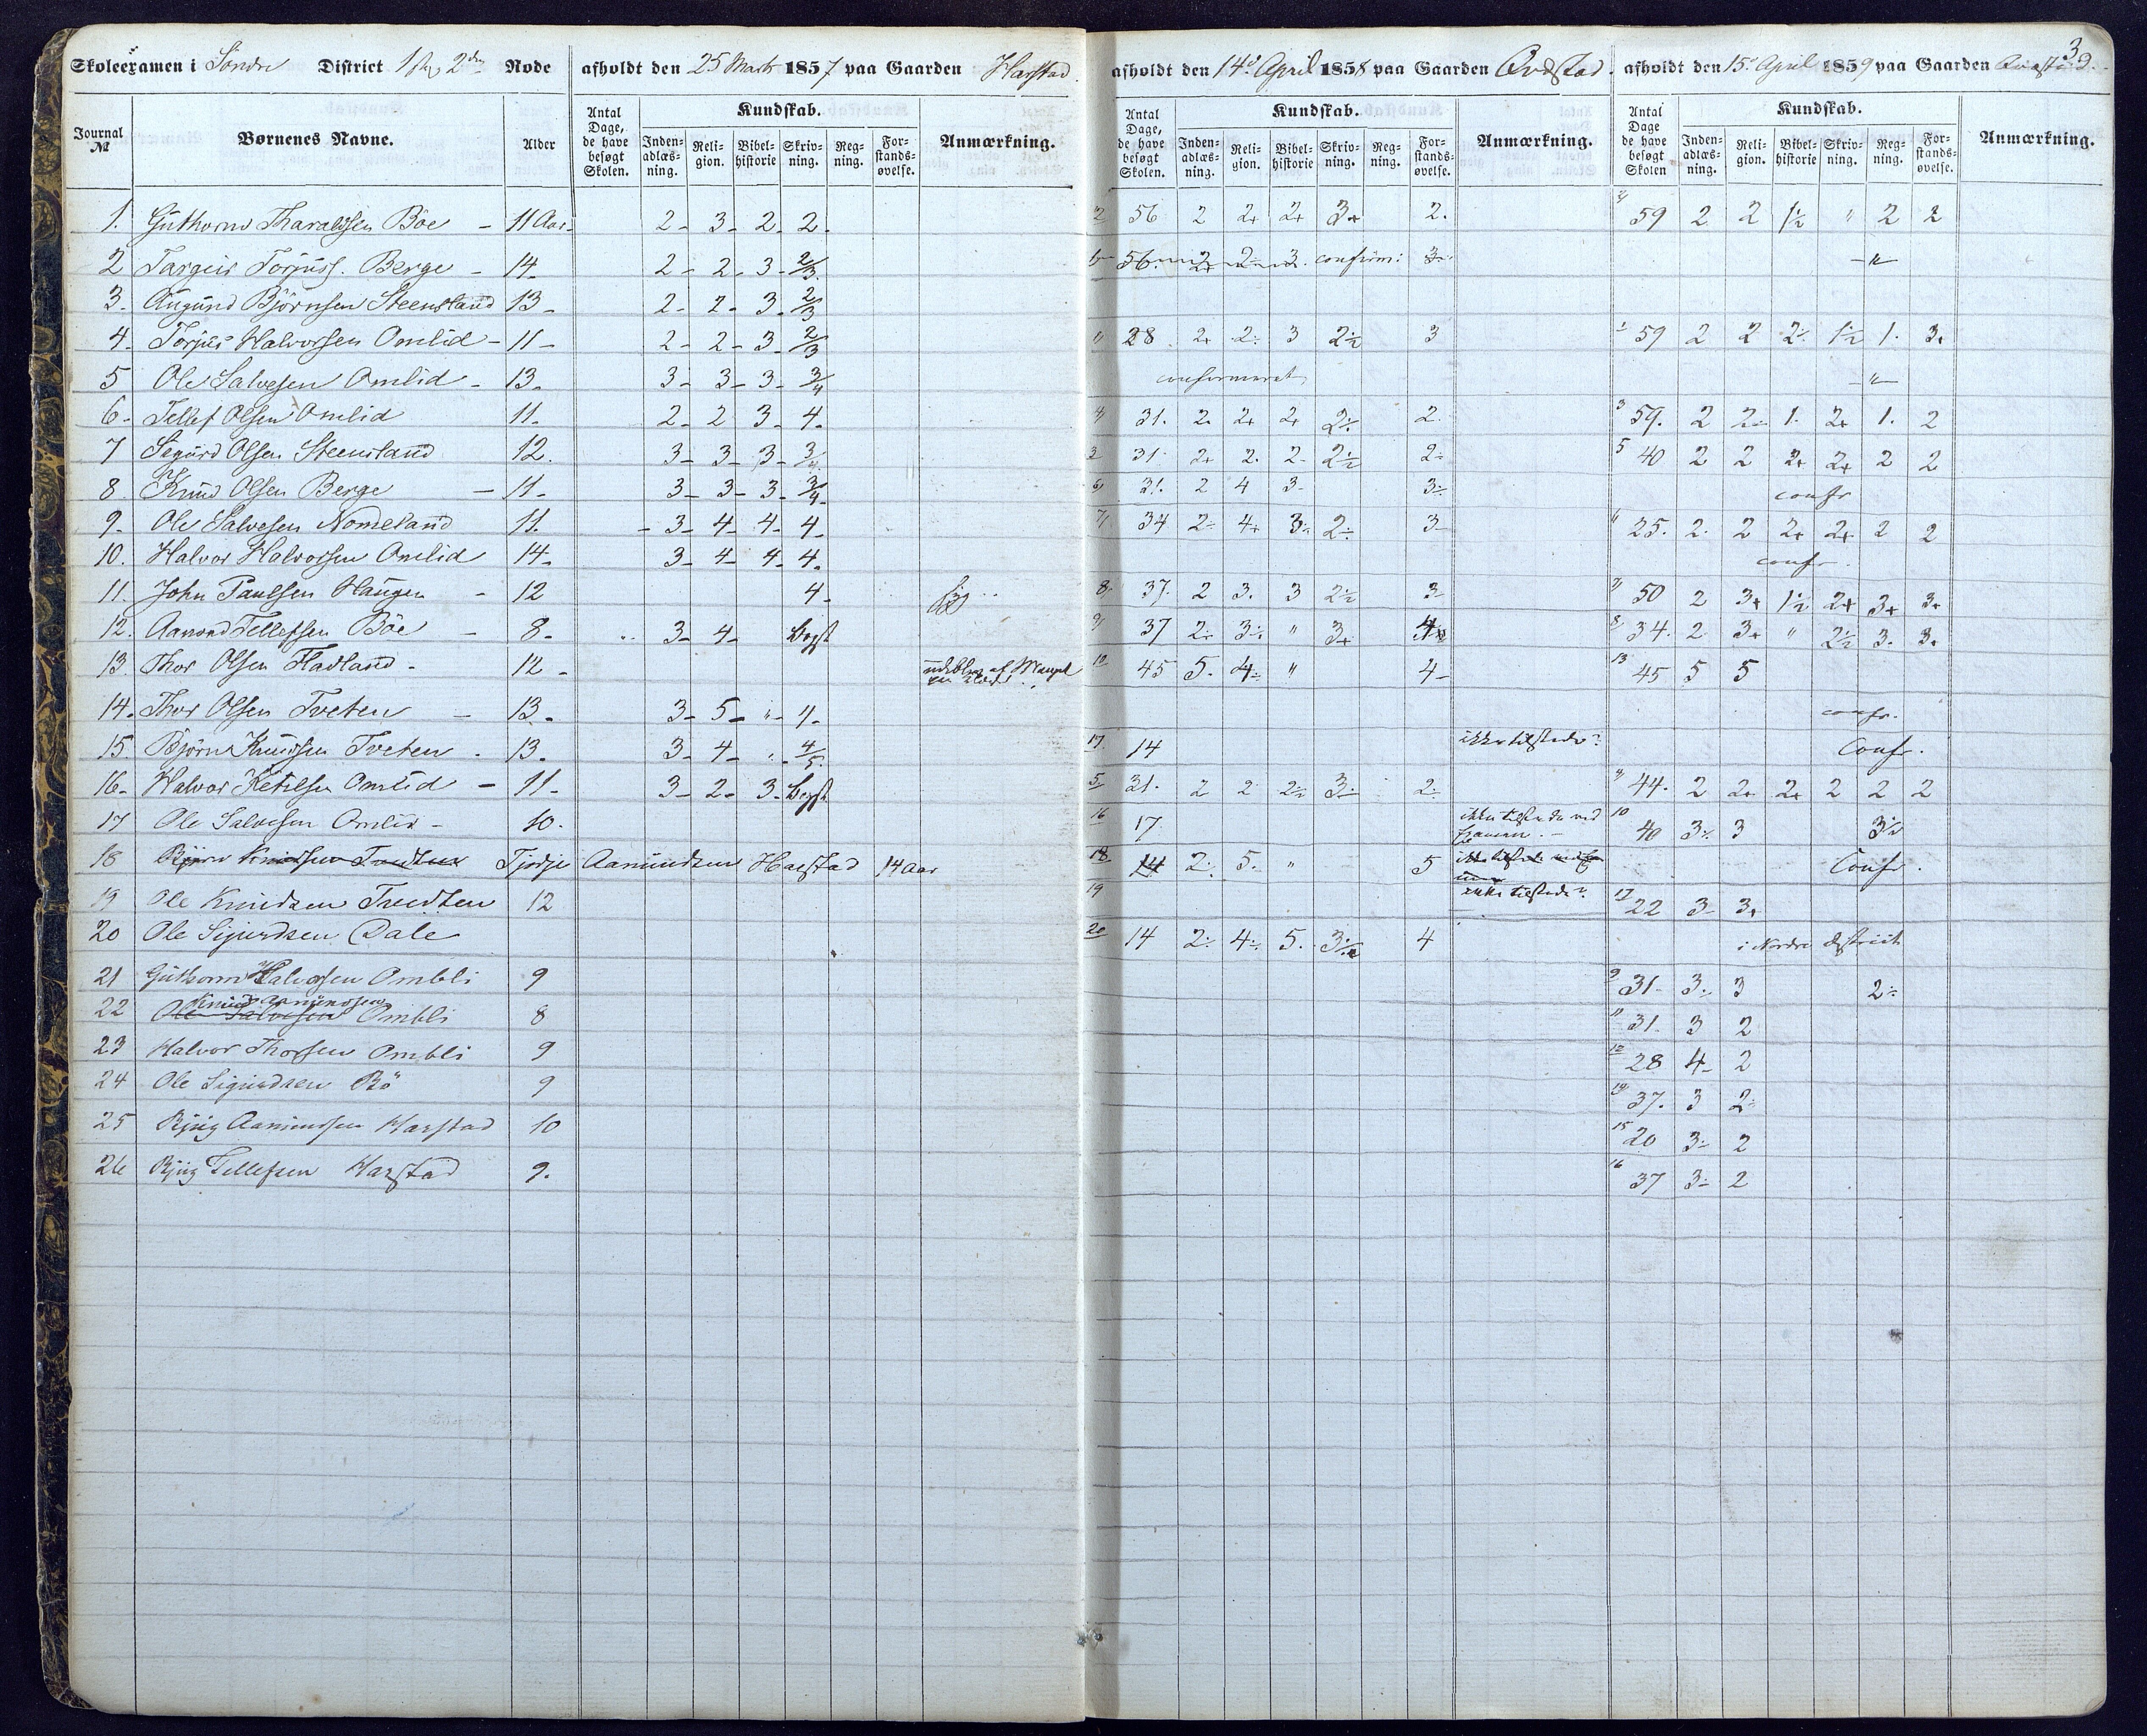 3
Skoleexamen i Søndre District 1ste, 2den Rode afholdt den 25 Marts 1857 paa Gaarden Harstad. afholdt den 14de April 1858 paa Gaarden Ovdstad. afholdt den 15de April 1859 paa Gaarden
Journal № Børnenes Navne. Alder Antal Dage, de have besøgt Skolen. Kundskab. Inden-adlæs-ning. Reli-gion. Bibel-historie Skriv-ning. Reg-ning. For-stands-øvelse. Anmærkning. Antal Dage, de have besøgt Skolen. Kundskab. Inden-adlæs-ning. Reli-gion. Bibel-historie Skriv-ning. Reg-ning. For-stands-øvelse. Anmærkning. Antal Dage de have besøgt Skolen Kundskab. Inden-adlæs-ning. Reli-gion. Bibel-historie Skriv-ning. Reg-ning. For-stands-øvelse. Anmærkning.
1. Guthorm Tharaldsen Böe - 11 Aar - 2 - 3 - 2 - 2 - 2 56 2 2+ 2+ 3+ 2. 59 2 2 1½ " 2 2
2 Targeir Torjuss. Berge - 14 - 2 - 2 - 3 - 2/3. 56. 2+ 2 3. confirm: 3 - " -
3. Augund Björnsen Steensland 13 - 2 - 2 - 3 - 2/3
4. Torjus Halvorsen Omlid - 11 - 2 - 2 - 3 - 2/3 28 2+ 2÷ 3 2½ 3 59 2 2 2÷ 1½ 1. 3.
5 Ole Salvesen Omlid - 13 - 3 - 3 - 3 - 3/4 confirmeret - " -
6 - Tellef Olsen Omlid 11 - 2 - 2 3 - 4 - 31. 2. 2+ 2+ 2÷ 2. 3 59. 2 2÷ 1. 2+ 1. 2
7 Sigurd Olsen Steensland 12. 3 - 3 - 3 - 3/4 3 31 2+ 2. 2. 2½ 2÷ 5 40 2 2 2+ 2+ 2 2
8. Knud Olsen Berge - 11 - 3 - 3 - 3 - 3/4 - 6 31. 2 4 3 - 3÷ confr
9 - Ole Salvesen Nomeland 11. - 3 - 4 - 4 - 4 - 7 34 2÷ 4+ 3÷ 2÷ 3 - 25. 2. 2 2+ 2+ 2 2
10. Halvor Halvorsen Omlid 14 - 3 - 4 - 4 - 4 - confr.
11. John Paulsen Haugen - 12 4 - 8. 37. 2 3. 3 2½ 3 - 50 2 3+ 1½ 2+ 3+ 3+
12. Aamond Tellefsen Böe - 8 - 3 - 4 - Begst 9 37 2÷ 3÷ " 3+ 34. 2 3+ " 2½ 3. 3.
13. Thor Olsen Fladland - 12 - udebleven af Mangel 10 45 5. 4÷ " 4 - 13 45 5 5
14. Thor Olsen Tveten - 13 - 3 - 5 - " - 4 - confr.
15. Björn Knudsen Tveten - 13 - 3 - 4 - " - 4/5. 17 14 ikke tilstede. Confr.
16 - Halvor Ketilsen Omlid - 11 - 3 - 2 - 3 - Begst 5 31. 2 2 2½ 3÷ 2÷ 44. 2 2+ 2+ 2 2 2
17 Ole Salvesen Omlid - 10 - 16 17 ikke tilstede ved Examen. - 10 40 3÷ 3 3½
18 Björn Knudsen Tvedten Tjödje Aamundsen Harstad 14 Aar 18 14 2÷ 5. " 5 Confr.
19 Ole Knudsen Tvedten 12 19 ikke tilstede. 17 22 3 - 3+
20 Ole Sigurdsen Dale 20 14 2÷ 4÷ 5. 3½ 4 i Nordre District
21 Guthorm Halvorsen Ombli 9 9 31 - 3÷ 3 2÷
22 Ole Salvesen Knud Aamundsen Ombli 8 11 31. 3 2
23 Halvor Thorsen Ombli 9 12 28 4 - 2
24 Ole Sigurdsen Bö 9 37. 3 2÷
25 Bjug Aamundsen Harstad 10 15 20 3÷ 2
26 Bjug Tellefsen Harstad 9. 16 37 3÷ 2